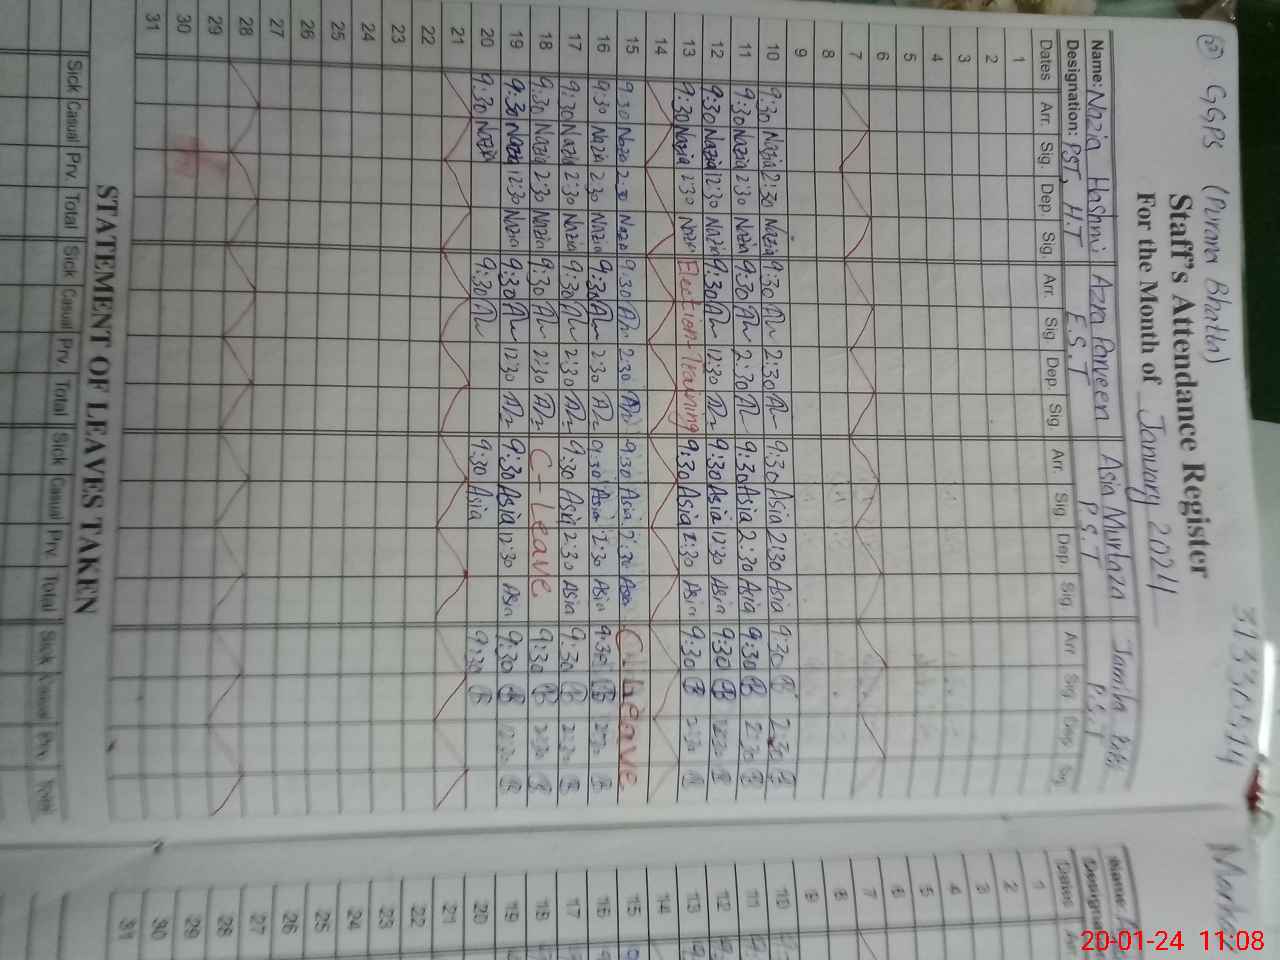 GGPS (Purana Bhatta) 31330514
Staff's Attendance Register
For the Month of January 2024
Name: Nazia Hashmi Azra Parveen Asia Murtaza
Designation: PST, H.T E.S.T P.S.T P.S.T
Dates Arr. Sig. Dep. Sig. Arr. Sig. Dep. Sig. Arr. Sig. Dep. Sig. Arr Sig. Dep Sig
1
2
3
4
5
6
7
8
9
10 9:30 Nazia 2:30 Nazia 9:30 2:30 9:30 Asia 2:30 Asia 9:30 2:30
11 9:30 Nazia 2:30 Nazia 9:30 2:30 9:30 Asia 2:30 Asia 9:30 2:30
12 9:30 Nazia 12:30 Nazia 9:30 12:30 9:30 Asia 12:30 Asia 9:30 12:30
13 9:30 Nazia 2:30 Nazia Election Training 9:30 Asia 2:30 Asia 9:30 2:30
14
15 9:30 Nazia 2:30 Nazia 9:30 2:30 9:30 Asia 2:30 Asia C-Leave
16 9:30 Nazia 2:30 Nazia 9:30 2:30 9:30 Asia 2:30 Asia 9:30 2:30
17 9:30 Nazia 2:30 Nazia 9:30 2:30 9:30 Asia 2:30 Asia 9:30 2:30
18 9:30 Nazia 2:30 Nazia 9:30 2:30 C-Leave 9:30 2:30
19 9:30 Nazia 12:30 Nazia 9:30 12:30 9:30 Asia 12:30 Asia 9:30 12:30
20 9:30 Nazia 9:30 9:30 Asia 9:30
21
22
23
24
25
26
27
28
29
30
31
STATEMENT OF LEAVES TAKEN
Sick Casual Prv. Total Sick Casual Prv. Total Sick Casual Prv. Total Sick Casual Prv. Total
Dates
1
2
3
4
5
6
7
8
9
10
11
12
13
14
15
16
17
18
19
20
21
22
23
24
25
26
27
28
29
30
31
20-01-24 11:08